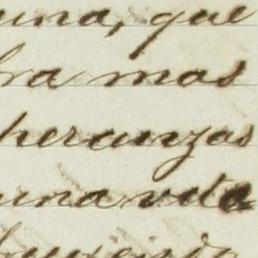 una, que
ra mas
peranzas
una vida